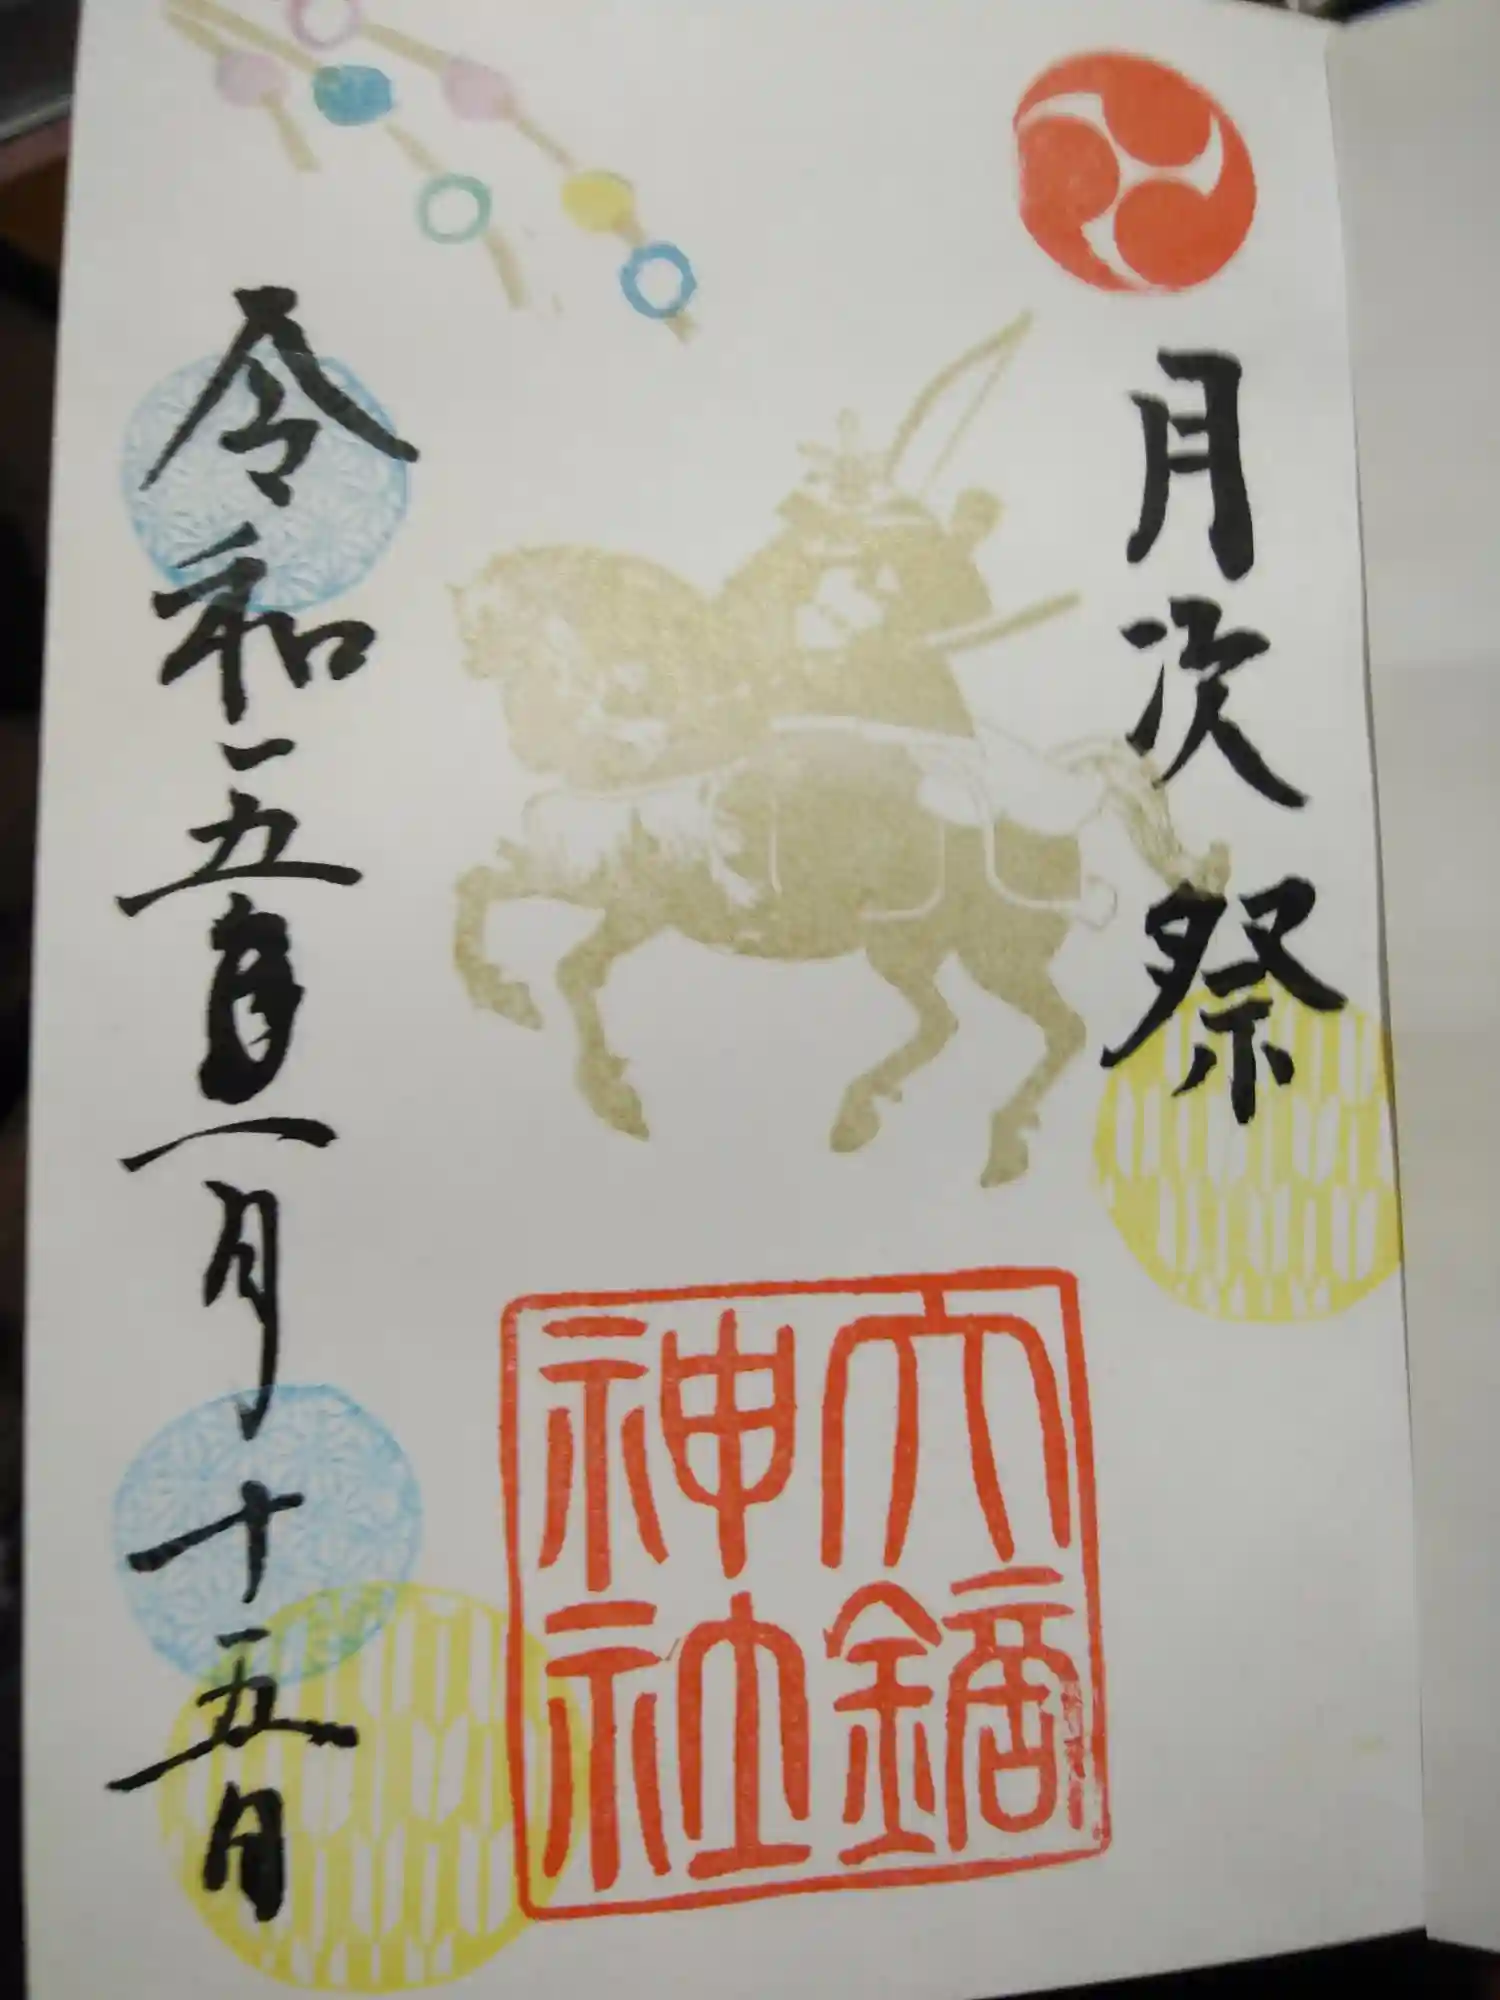 月次祭
六鏑
神社
令和五年一月十五日